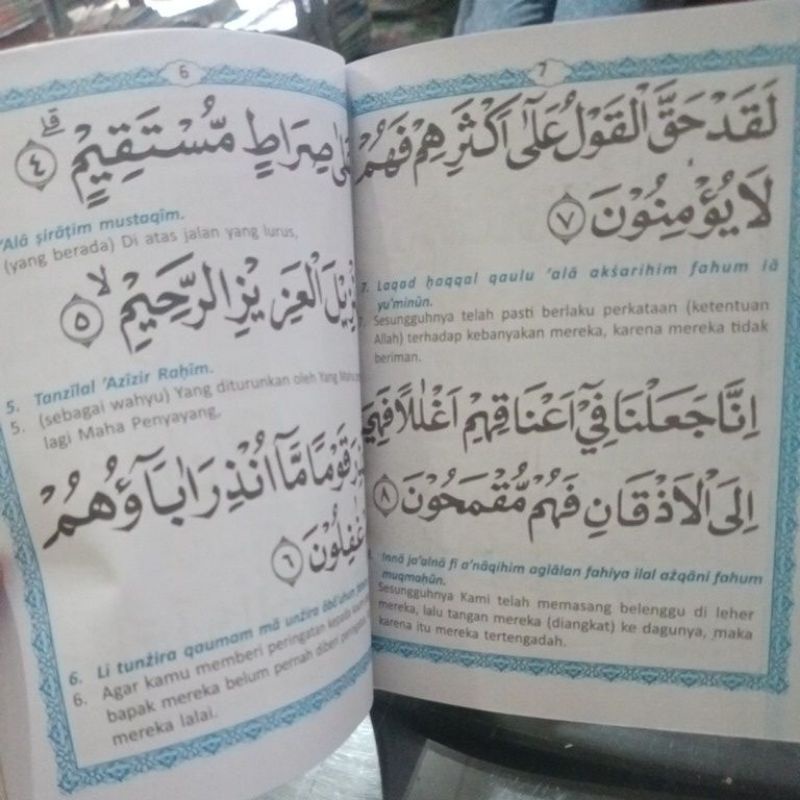 6
صِرَاطٍ مُّسْتَقِيْمٍۙ ﴿٤﴾
'Alā ṣirāṭim mustaqīm.
(yang berada) Di atas jalan yang lurus,
الْعَزِيْزِ الرَّحِيْمِۙ ﴿٥﴾
5. Tanzīlal 'Azīzir Raḥīm.
5. (sebagai wahyu) Yang diturunkan oleh Yang
lagi Maha Penyayang,
قَوْمًا مَّآ اُنْذِرَ اٰبَاۤؤُهُمْ
غٰفِلُوْنَ ﴿٦﴾
6. Li tunżira qaumam mā unżira ābā'uhum
6. Agar kamu memberi peringatan kepada
bapak mereka belum pernah diberi
mereka lalai.
7
لَقَدْ حَقَّ الْقَوْلُ عَلٰٓى اَكْثَرِهِمْ فَهُمْ
لَا يُؤْمِنُوْنَ ﴿٧﴾
7. Laqad ḥaqqal qaulu 'alā akṡarihim fahum lā
yu'minūn.
7. Sesungguhnya telah pasti berlaku perkataan (ketentuan
Allah) terhadap kebanyakan mereka, karena mereka tidak
beriman.
اِنَّا جَعَلْنَا فِيْٓ اَعْنَاقِهِمْ اَغْلٰلًا فَهِيَ
اِلَى الْاَذْقَانِ فَهُمْ مُّقْمَحُوْنَ ﴿٨﴾
8. Innā ja'alnā fī a'nāqihim aglālan fahiya ilal ażqāni fahum
muqmaḥūn.
Sesungguhnya Kami telah memasang belenggu di leher
mereka, lalu tangan mereka (diangkat) ke dagunya, maka
karena itu mereka tertengadah.